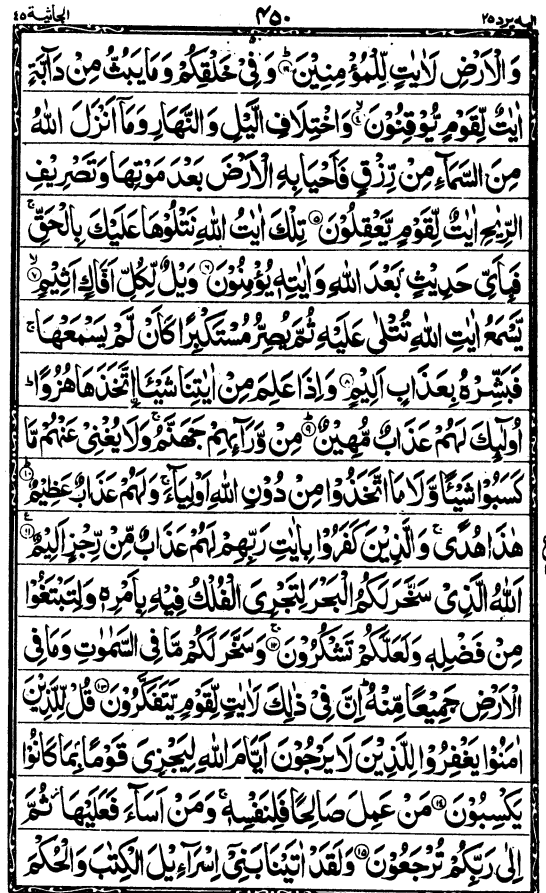 الجاثية ٤٥
٤٥٠
اليه يرد ٢٥
وَالْاَرْضِ لَاٰيٰتٍ لِّلْمُؤْمِنِيْنَ ؕ۳ وَفِيْ خَلْقِكُمْ وَمَا يَبُثُّ مِنْ دَآبَّةٍ
اٰيٰتٌ لِّقَوْمٍ يُّوْقِنُوْنَ ۙ۴ وَاخْتِلَافِ الَّيْلِ وَالنَّهَارِ وَمَآ اَنْزَلَ اللّٰهُ
مِنَ السَّمَآءِ مِنْ رِّزْقٍ فَاَحْيَا بِهِ الْاَرْضَ بَعْدَ مَوْتِهَا وَتَصْرِيْفِ
الرِّيٰحِ اٰيٰتٌ لِّقَوْمٍ يَّعْقِلُوْنَ ۵ تِلْكَ اٰيٰتُ اللّٰهِ نَتْلُوْهَا عَلَيْكَ بِالْحَقِّ ۚ
فَبِاَيِّ حَدِيْثٍۭ بَعْدَ اللّٰهِ وَاٰيٰتِهٖ يُؤْمِنُوْنَ ۶ وَيْلٌ لِّكُلِّ اَفَّاكٍ اَثِيْمٍ ۙ۷
يَّسْمَعُ اٰيٰتِ اللّٰهِ تُتْلٰى عَلَيْهِ ثُمَّ يُصِرُّ مُسْتَكْبِرًا كَاَنْ لَّمْ يَسْمَعْهَا ۚ
فَبَشِّرْهُ بِعَذَابٍ اَلِيْمٍ ۸ وَاِذَا عَلِمَ مِنْ اٰيٰتِنَا شَيْـًٔا اتَّخَذَهَا هُزُوًا ؕ
اُولٰٓئِكَ لَهُمْ عَذَابٌ مُّهِيْنٌ ؕ۹ مِنْ وَّرَآئِهِمْ جَهَنَّمُ ۚ وَلَا يُغْنِيْ عَنْهُمْ مَّا
كَسَبُوْا شَيْـًٔا وَّلَا مَا اتَّخَذُوْا مِنْ دُوْنِ اللّٰهِ اَوْلِيَآءَ ۚ وَلَهُمْ عَذَابٌ عَظِيْمٌ ؕ۱۰
هٰذَا هُدًى ۚ وَالَّذِيْنَ كَفَرُوْا بِاٰيٰتِ رَبِّهِمْ لَهُمْ عَذَابٌ مِّنْ رِّجْزٍ اَلِيْمٌ ۱۱
اَللّٰهُ الَّذِيْ سَخَّرَ لَكُمُ الْبَحْرَ لِتَجْرِيَ الْفُلْكُ فِيْهِ بِاَمْرِهٖ وَلِتَبْتَغُوْا
مِنْ فَضْلِهٖ وَلَعَلَّكُمْ تَشْكُرُوْنَ ۚ۱۲ وَسَخَّرَ لَكُمْ مَّا فِي السَّمٰوٰتِ وَمَا فِي
الْاَرْضِ جَمِيْعًا مِّنْهُ ؕ اِنَّ فِيْ ذٰلِكَ لَاٰيٰتٍ لِّقَوْمٍ يَّتَفَكَّرُوْنَ ۱۳ قُلْ لِّلَّذِيْنَ
اٰمَنُوْا يَغْفِرُوْا لِلَّذِيْنَ لَا يَرْجُوْنَ اَيَّامَ اللّٰهِ لِيَجْزِيَ قَوْمًۢا بِمَا كَانُوْا
يَكْسِبُوْنَ ۱۴ مَنْ عَمِلَ صَالِحًا فَلِنَفْسِهٖ ۚ وَمَنْ اَسَآءَ فَعَلَيْهَا ؗ ثُمَّ
اِلٰى رَبِّكُمْ تُرْجَعُوْنَ ۱۵ وَلَقَدْ اٰتَيْنَا بَنِيْٓ اِسْرَآءِيْلَ الْكِتٰبَ وَالْحُكْمَ